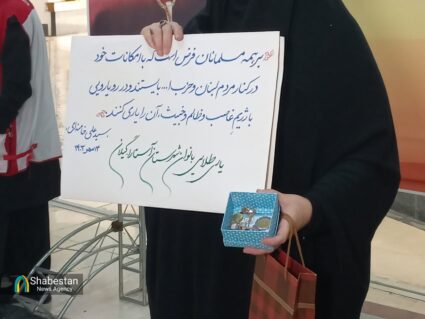 بر همه مسلمانان فرض است که با امکانات خود
در کنار مردم لبنان و حزب ا... بایستند و در رویارویی
با رژیم غاصب و ظالم و خبیث، آن را یاری کنند.
سید علی خامنه‌ای
یاری طلایی بانوان شهرستان آستارا گیلان
Shabestan
News Agency